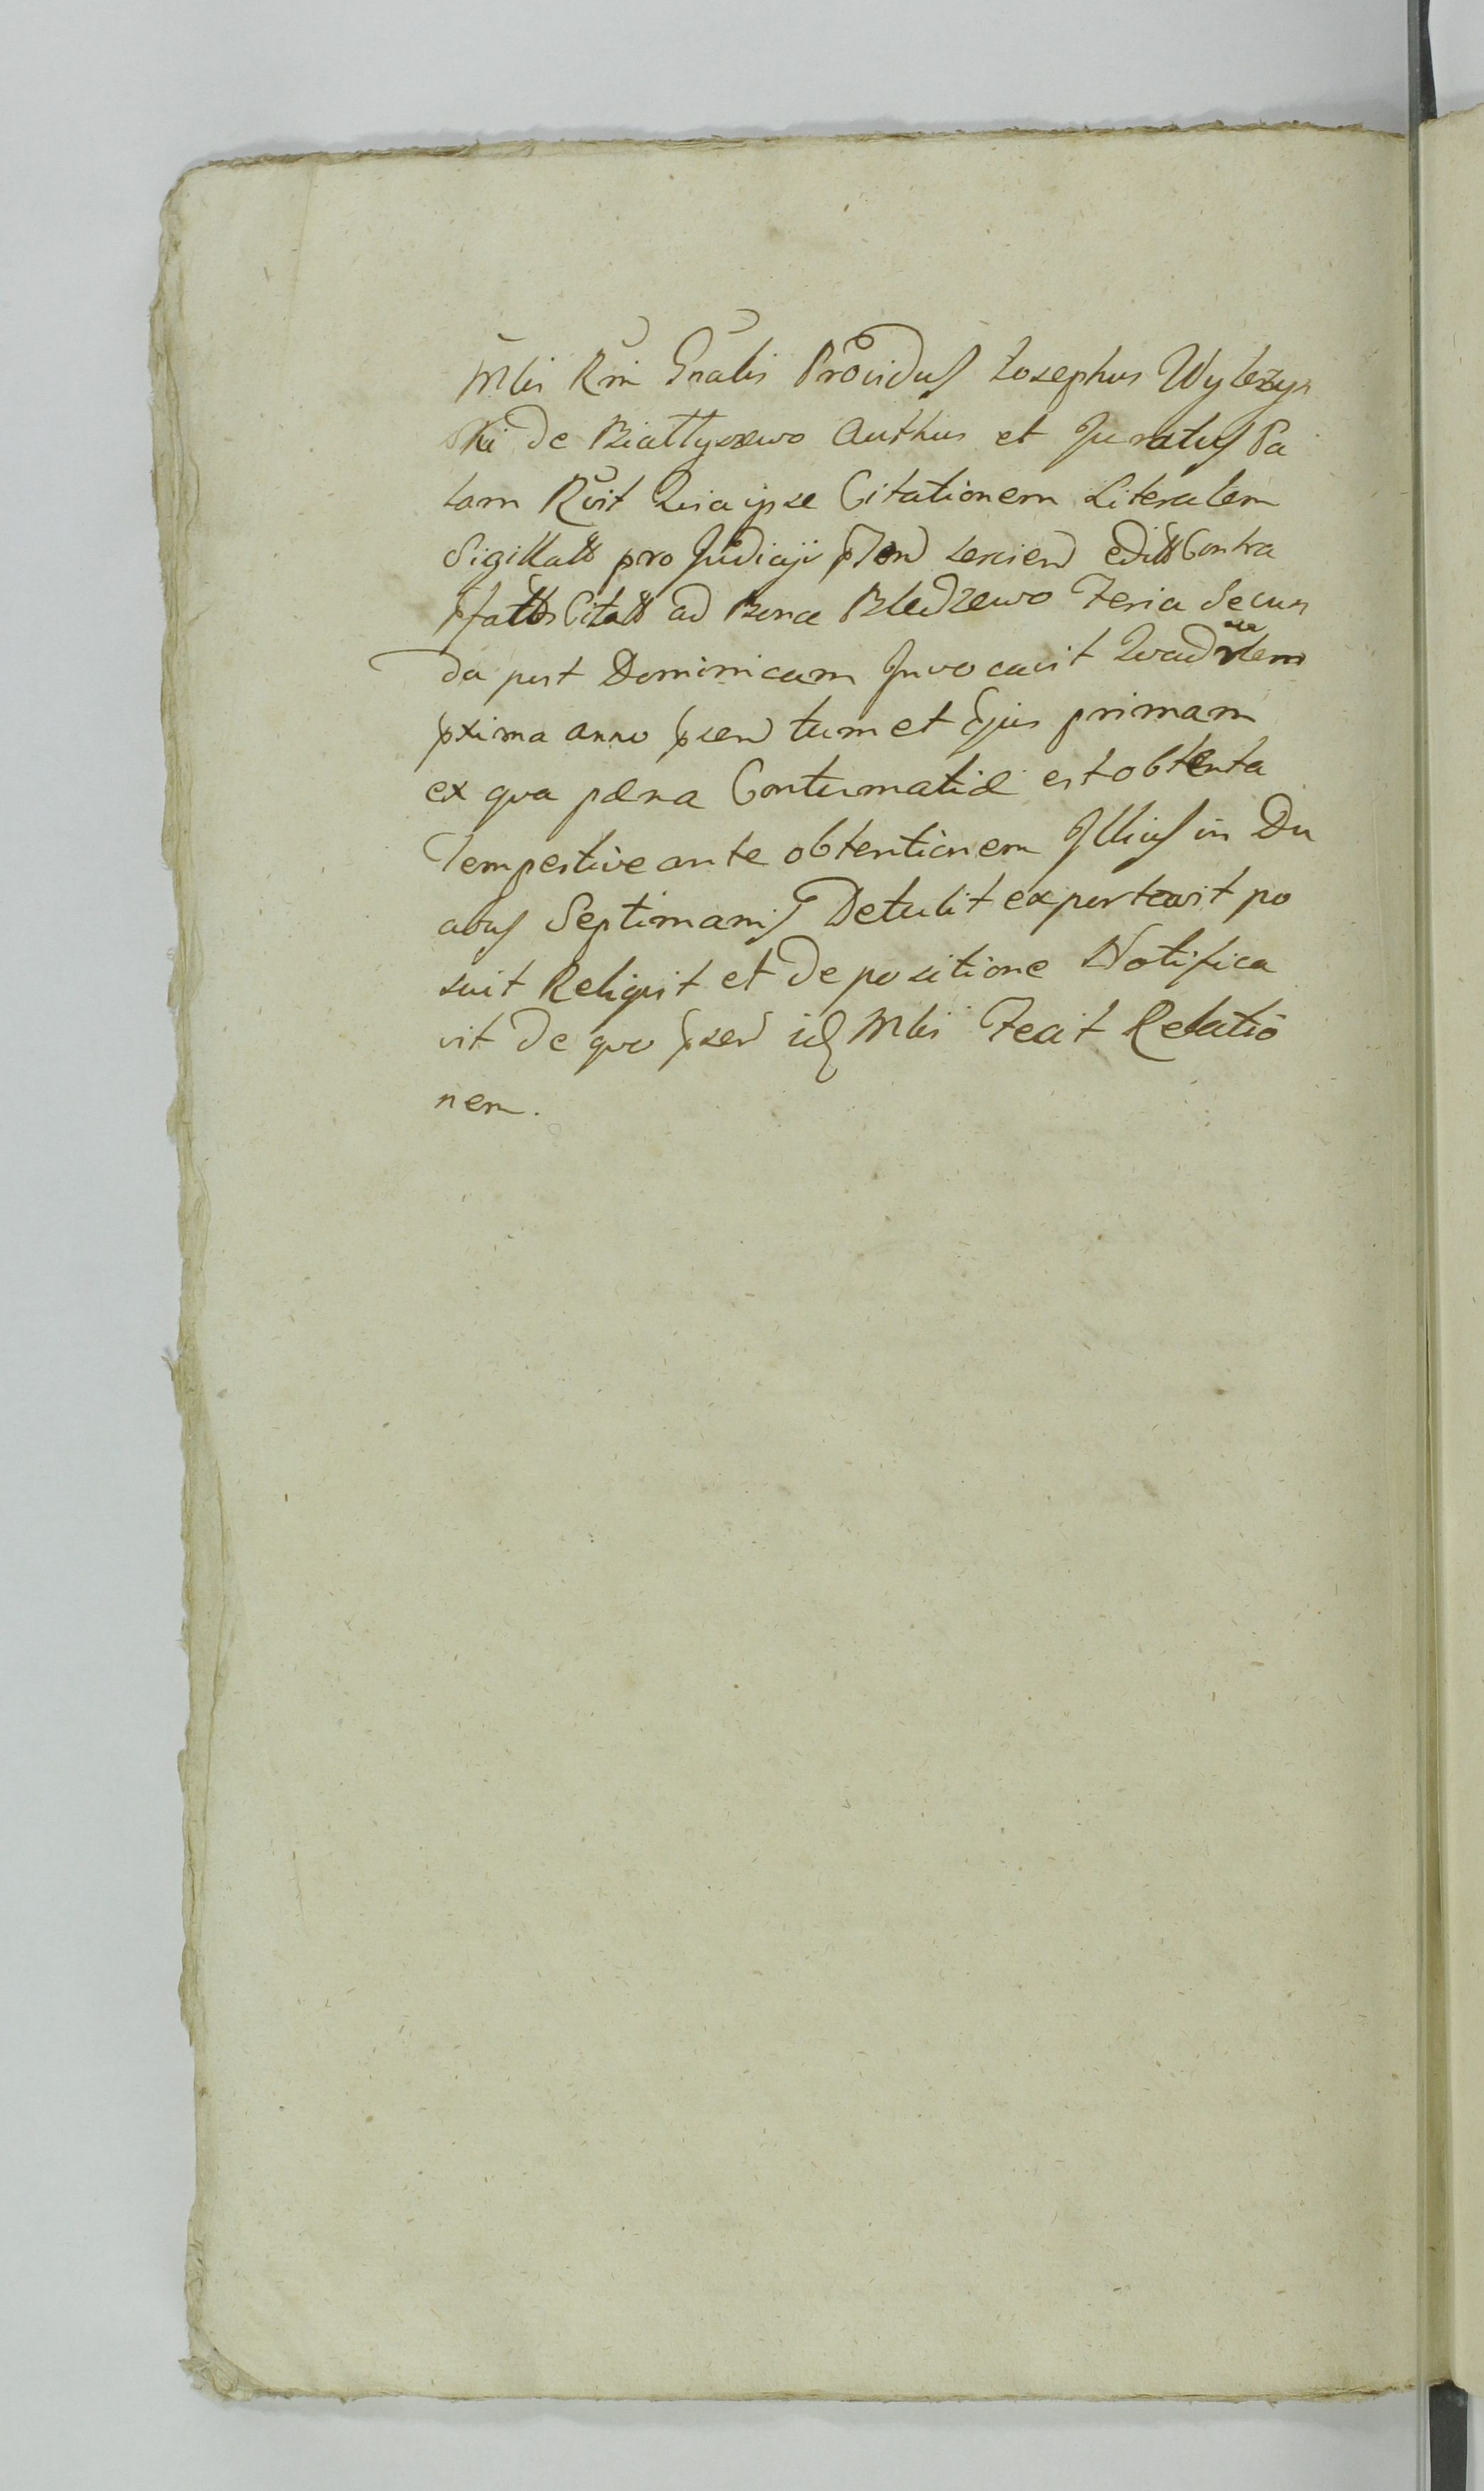 Mlis Rni Gnalis Providus Iosephus Wylezyn
ski de Biattyszewo Authus et Juratus Pa
lam Rvit Quia ipse Citationem Literalem
Sigillatt pro Judiciji sexien editt Contra
pfattos Citatt ad Bona Bledzewo Feria Secun
da post Dominicam Invocavit Quadralem
pxima anno psen tum et Ejus primam
ex qva pæna Contumatiæ est obtenta
Tempestive ante obtentionem Illius in Du
abus Septimanis Detulit exportavit po
suit Reliqvit et de positione Notifica
vit de qvo psen idq Mlis Fecit Relatio
nem.